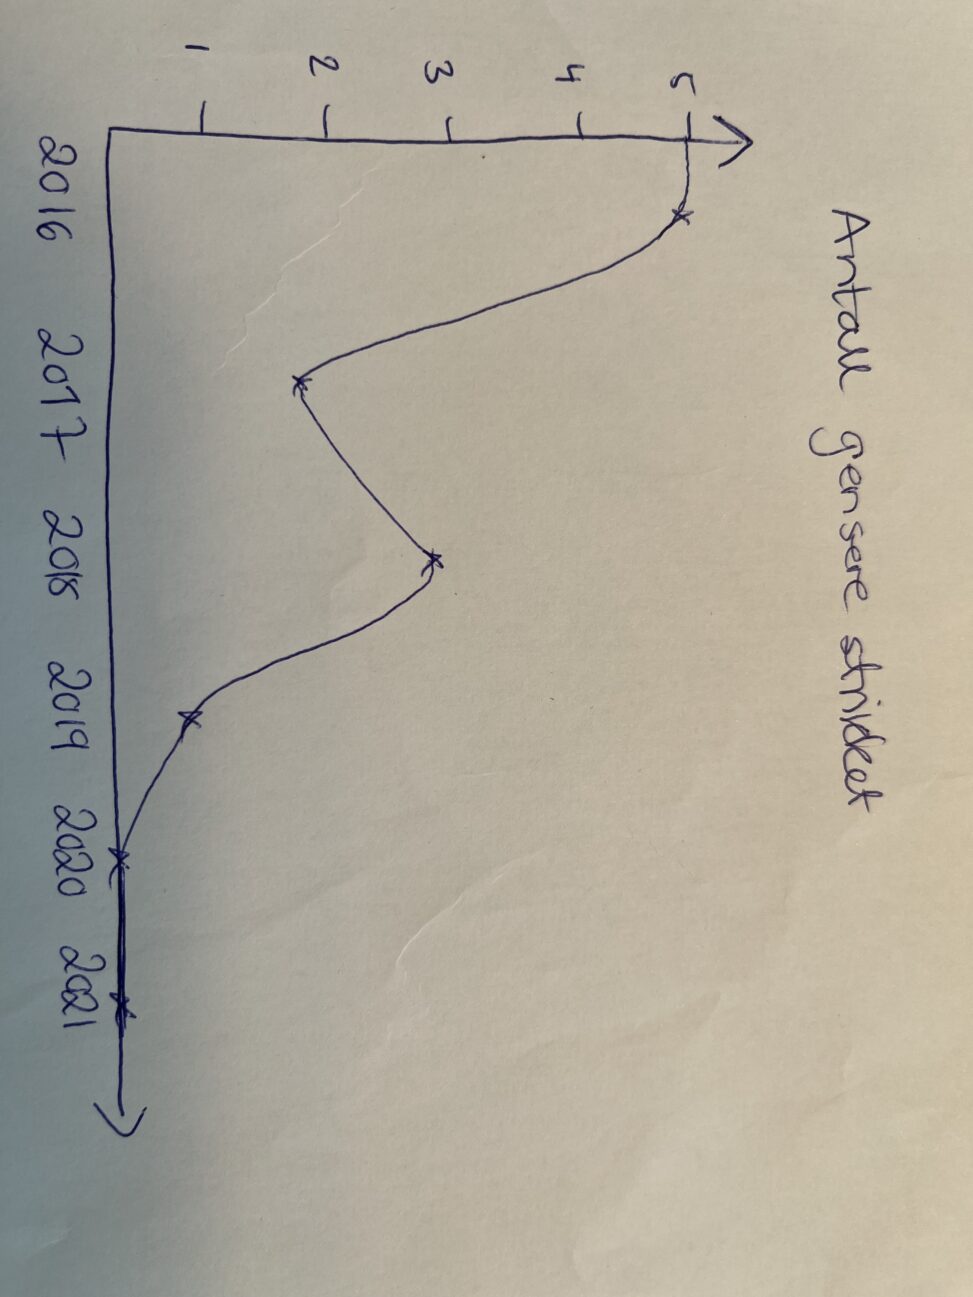 Antall gensere strikket
5
4
3
2
1
2016 2017 2018 2019 2020 2021